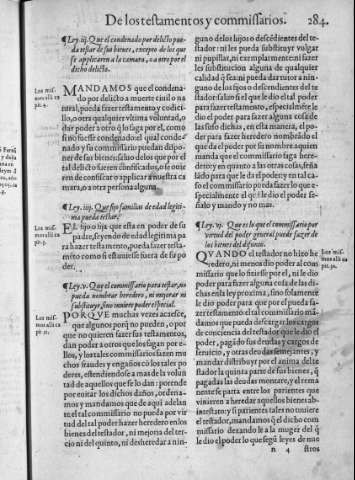 De los testamentos y commissarios. 284.
¶Ley.iij. Que el condenado por delicto pue-
da testar de sus bienes, excepto de los que
se applicaren a la camara, o a otro por el
dicho delicto.
Los mis-
MANDAMOS que el condena-
do por delicto a muerte ciuil o na
tural, pueda fazer testamento y codicil-
lo, o otra qualquier vltima voluntad, o
dar poder a otro q̃ lo faga por el, como
sino fuesse condenado: el qual conde-
nado y su commissario puedan dispo-
ner de sus bienes: saluo delos que por el
tal delicto fueren confiscados, o se ouie
ren de confiscar o applicar a nuestra ca
mara, o a otra persona alguna.
¶Ley.iiij. Que fijo familias de edad legiti-
ma pueda testar.
EL fijo o fija que esta en poder de su
padre, seyendo de edad legitima pa
ra hazer testamento, pueda fazer testa-
mento como si estuuiesse fuera de su po
der.
¶Ley.v. Que el commissario para testar, no
pueda nombrar heredero, ni mejorar ni
substituyr, sino tuuiere poder especial.
Los mis-
PORQVE muchas vezes acaesce,
que algunos porq̃ no pueden, o por
que no quieren fazer sus testamentos,
dan poder a otros que los fagan por e-
llos, y los tales commissarios fazen mu
chos fraudes y engaños cõ los tales po
deres, estendiendose a mas de la volun
tad de aquellos que se lo dan: porende
por euitar los dichos daños, ordena-
mos y mandamos que de aqui adelan
te el tal commissario no pueda por vir
tud del tal poder hazer heredero en los
bienes del testador, ni mejoria del ter-
cio ni del quinto, ni desheredar a nin-
guno de los fijos o descẽdientes del tes-
tador: ni les pueda substituyr vulgar
ni pupilar, ni exemplarmente ni fazer-
les substitucion alguna de qualquier
calidad q̃ sea: ni pueda dar tutor a nin-
guno de los fijos o descendientes del te
stador: saluo si el que le dio el tal poder
para fazer testamento, especialmẽte le
dio el poder para fazer alguna cosa de
las suso dichas, en esta manera, el po-
der para fazer heredero nombrãdo el
que da el poder por su nombre aquien
manda que el commissario faga here-
dero: y en quanto a las otras cosas, seña
lado para que le da el poder: y en tal ca-
so el commissario pueda fazer lo que e-
specialmente el q̃ le dio el poder se-
ñalo y mando y no mas.
¶Ley.vj. Que es lo que el commissario por
virtud del poder general puede fazer de
los bienes del difunto.
QVANDO el testador no hizo he
redero, ni menos dio poder al com
missario que lo fiziesse por el, ni le dio
poder para fazer alguna cosa de las di-
chas en la ley proxima, sino solamente
le dio poder para que por el pueda fa-
zer testamento: el tal commissario mã-
damos que pueda descargar los cargos
de conciencia del testador que le dio el
poder, pagãdo sus deudas y cargos de
seruicio, y otras deudas semejantes, y
mandar distribuyr por el anima del te-
stador la quinta parte de sus bienes, q̃
pagadas las deudas montare, y el rema
nente se parta entre los parientes que
viniessen a heredar aquellos bienes ab-
intestato: y si parientes tales no tuuiere
el testador, mandamos q̃ el dicho com
missario dexando le a la muger del q̃
le dio el poder lo que segũ leyes de nue
n 4 stros